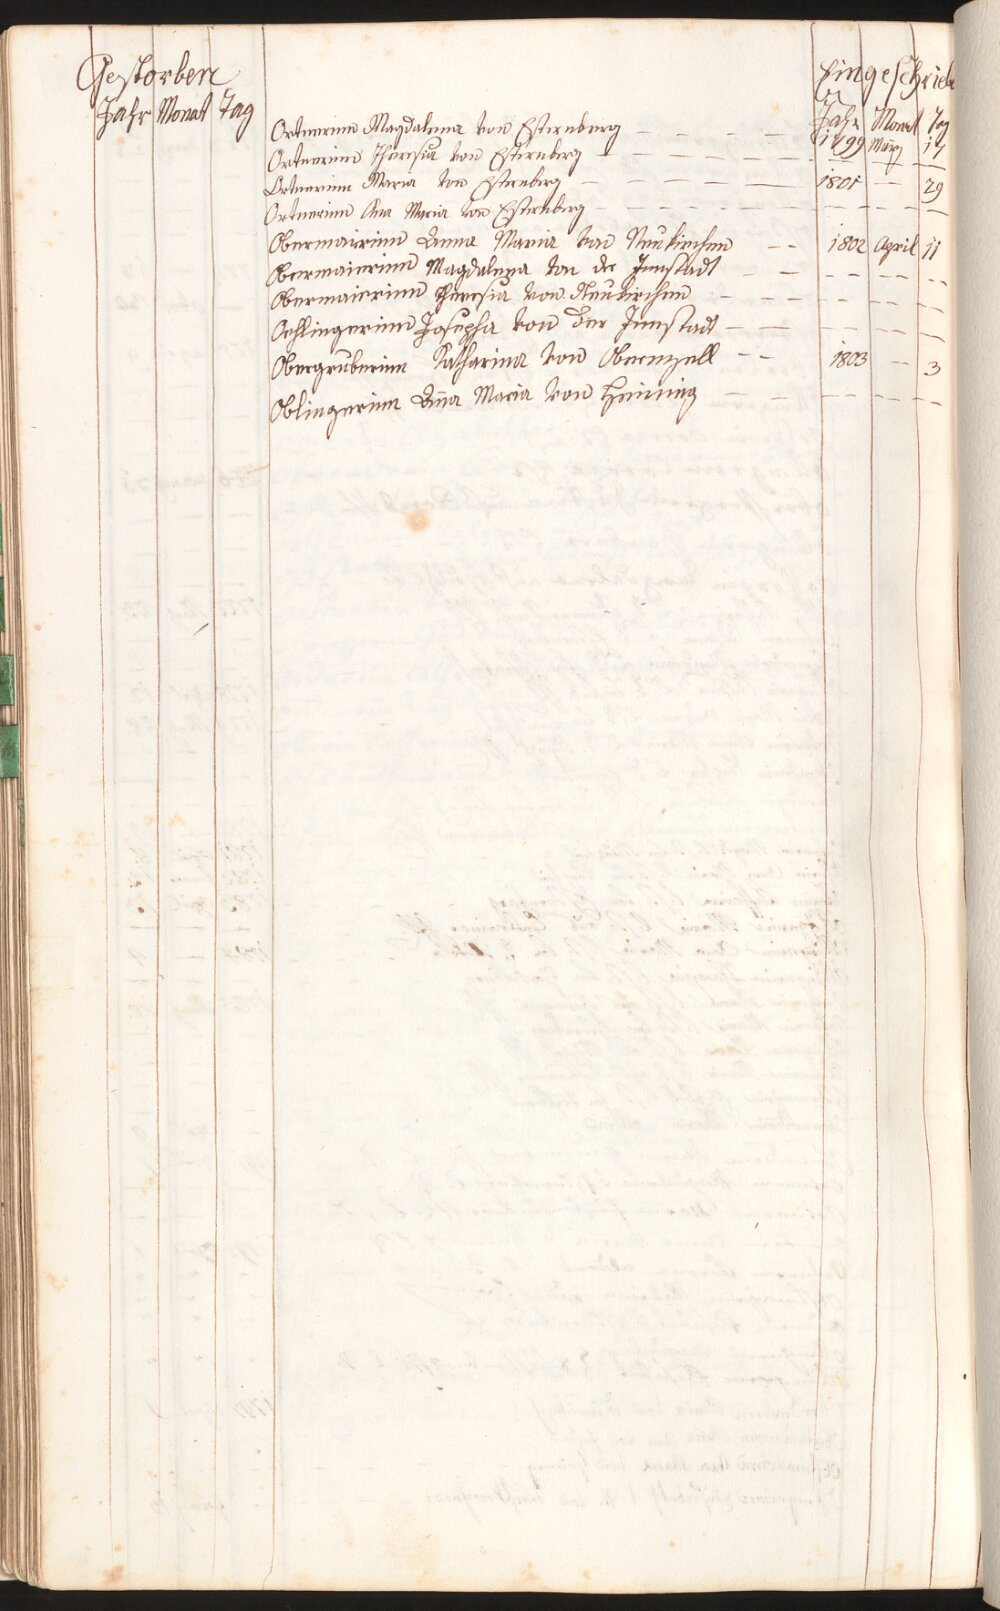 Gestorben Eingeschrieben
Jahr Monat Tag Jahr Monat Tag
Ortnerinn Magdalena von Esternberg — — — — 1799 März 17
Ortnerinn Theresia von Esternberg — — — — — — — —
Ortnerinn Maria von Esternberg — — — — — 1801 — 29
Ortnerinn Ana Maria von Esternberg — — — — — — — —
Obermairinn Anna Maria von Neukirchen — — 1802 April 11
Obermaierinn Magdalena von der Innstadt — — — — — —
Obermaierinn Theresia von Neukirchen — — — — — — —
Oehlingerinn Josepha von der Innstadt — — — — — — —
Obergruberinn Katharina von Obernzell — — 1803 — 3
Oblingerinn Ana Maria von Heining — — — — — — —